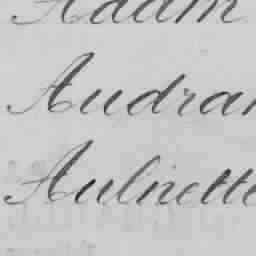 Adam
Audran
Aulnette